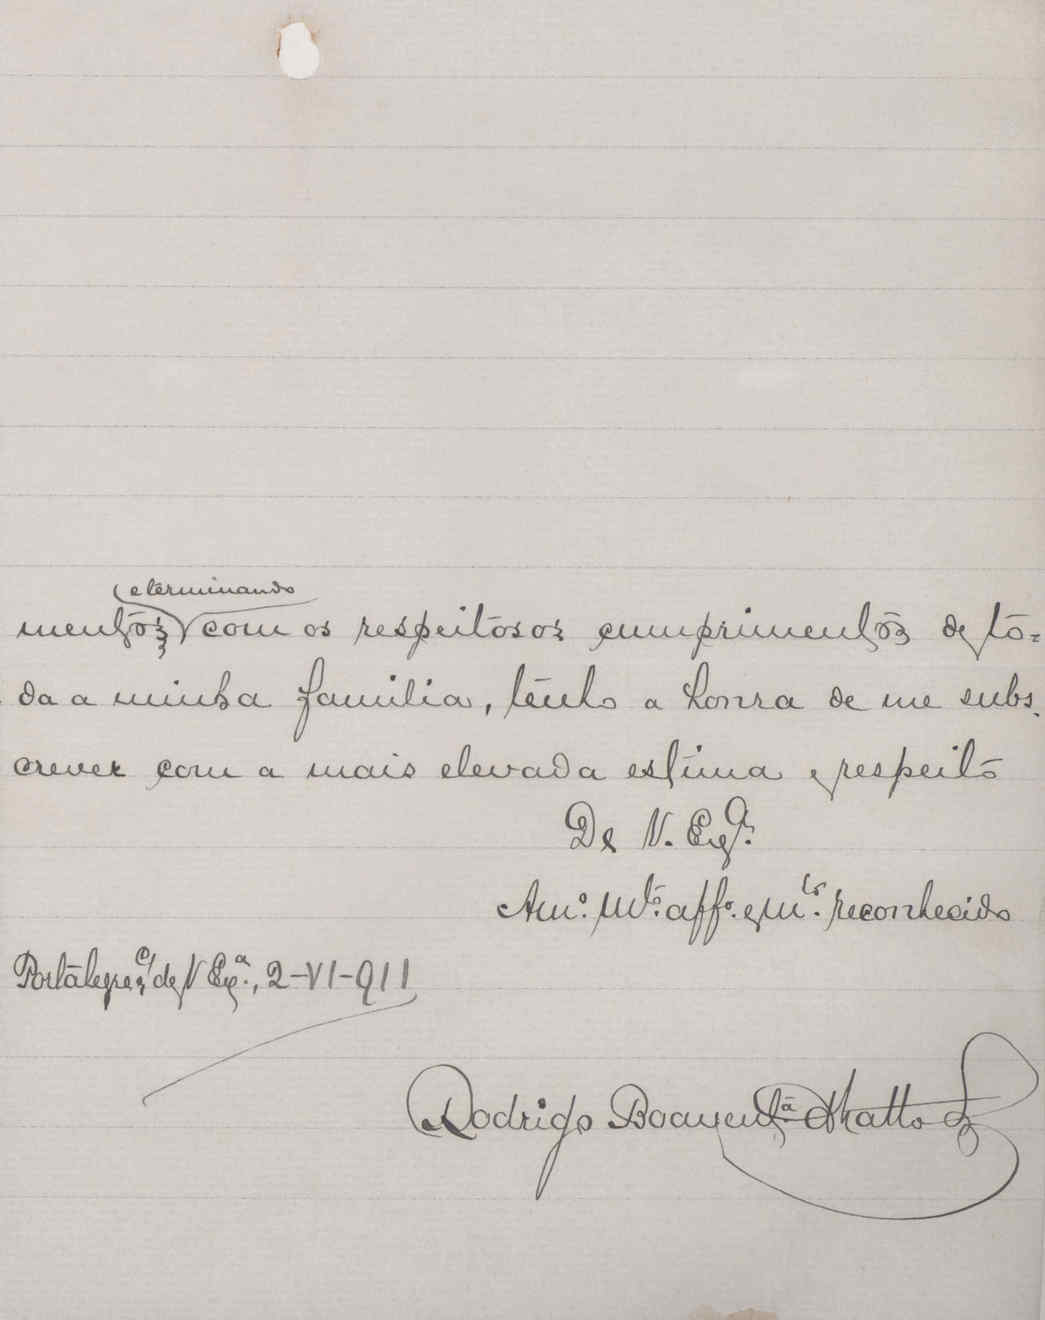 e terminando
mentos com os respeitosos cumprimentos de to=
da a minha familia, tenho a honra de me subs-
crever com a mais elevada estima e respeito
De V. Exª.
Amº. Mtº. affº. e mtº. reconhecido
Portalegre, c/ de V Exª., 2-VI-911
Rodrigo Boaventª Mattos